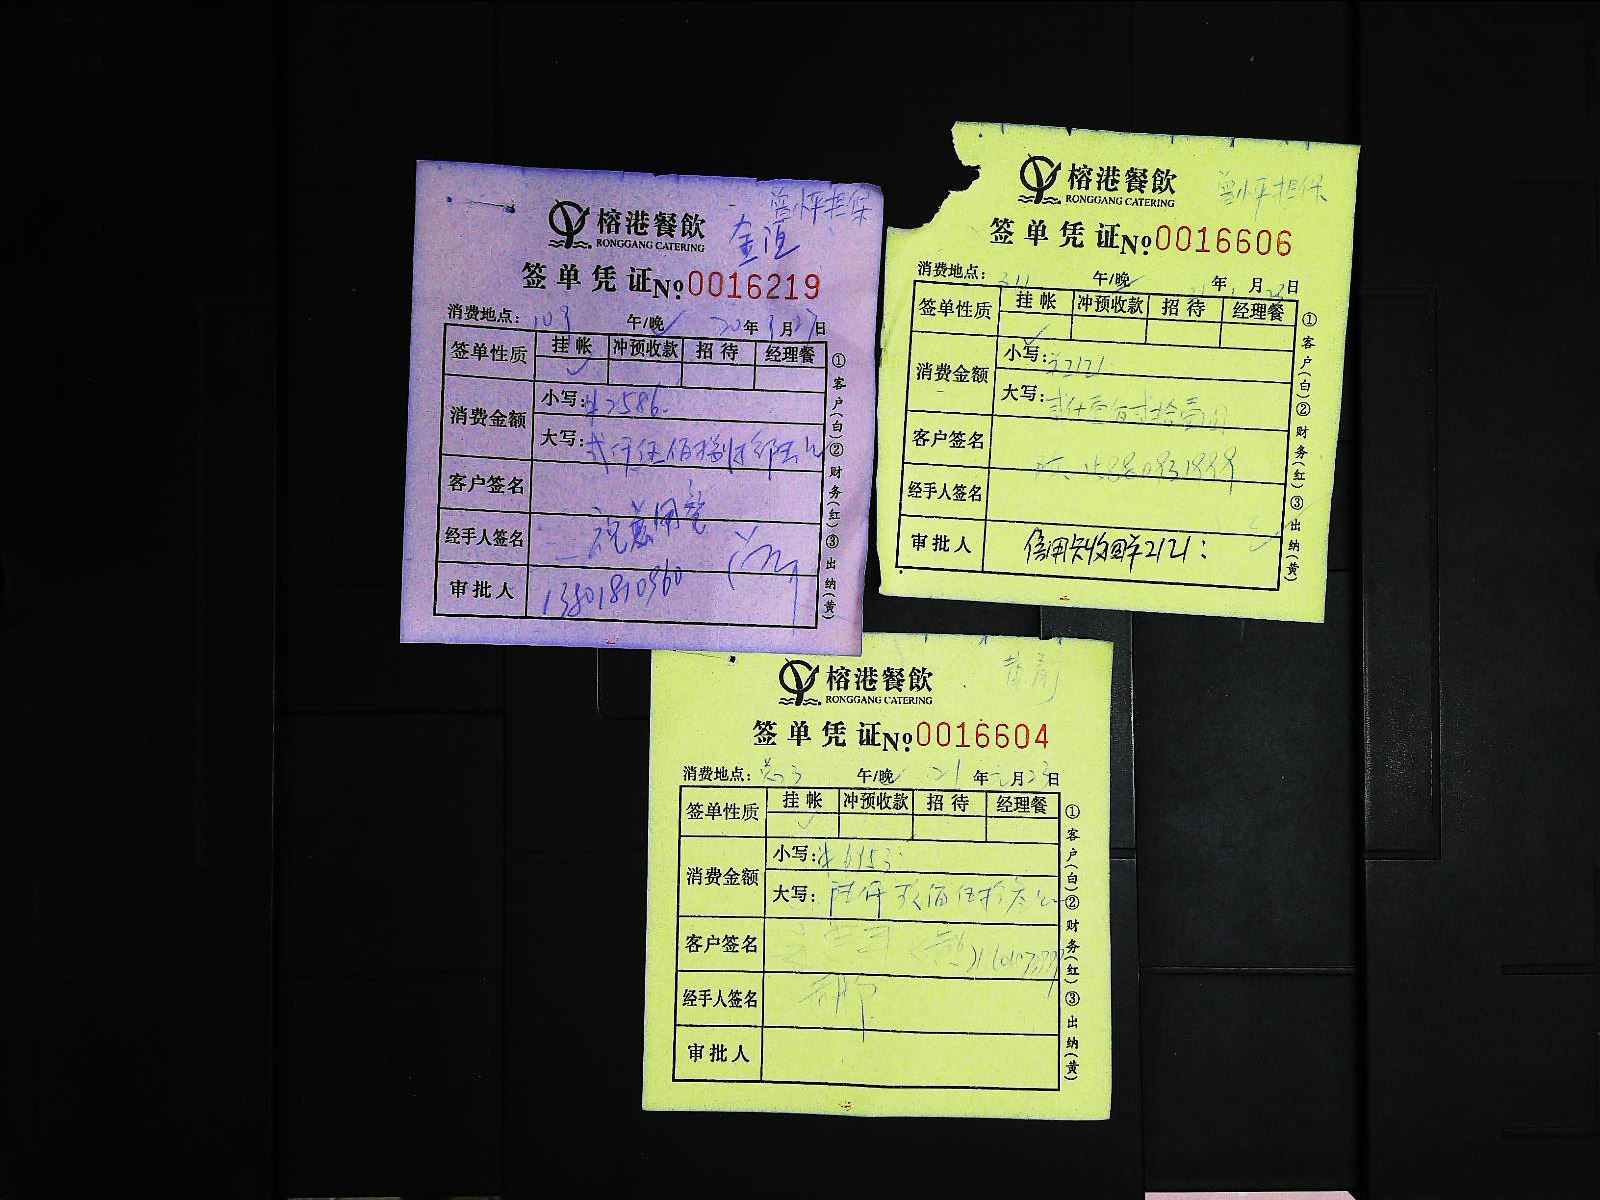 曾小平担保
榕港餐飲
RONGGANG CATERING
签单凭证№0016219
消费地点: 109 午/晚✓ 20年9月27日
签单性质 挂帐 冲预收款 招待 经理餐
消费金额
小写:¥2586.
大写:
客户签名
经手人签名
审批人
①客户(白)②财务(红)③出纳(黄)
榕港餐飲
RONGGANG CATERING
曾小平担保
签单凭证№0016606
消费地点: 午/晚 年 月 日
签单性质 挂帐 冲预收款 招待 经理餐
消费金额
小写:¥2121.
大写:贰仟壹佰贰拾壹元
客户签名
经手人签名
审批人 信用卡收回单2121:
①客户(白)②财务(红)③出纳(黄)
榕港餐飲
RONGGANG CATERING
签单凭证№0016604
消费地点: 午/晚✓ 21年 月23日
签单性质 挂帐 冲预收款 招待 经理餐
消费金额
小写:
大写:
客户签名
经手人签名
审批人
①客户(白)②财务(红)③出纳(黄)